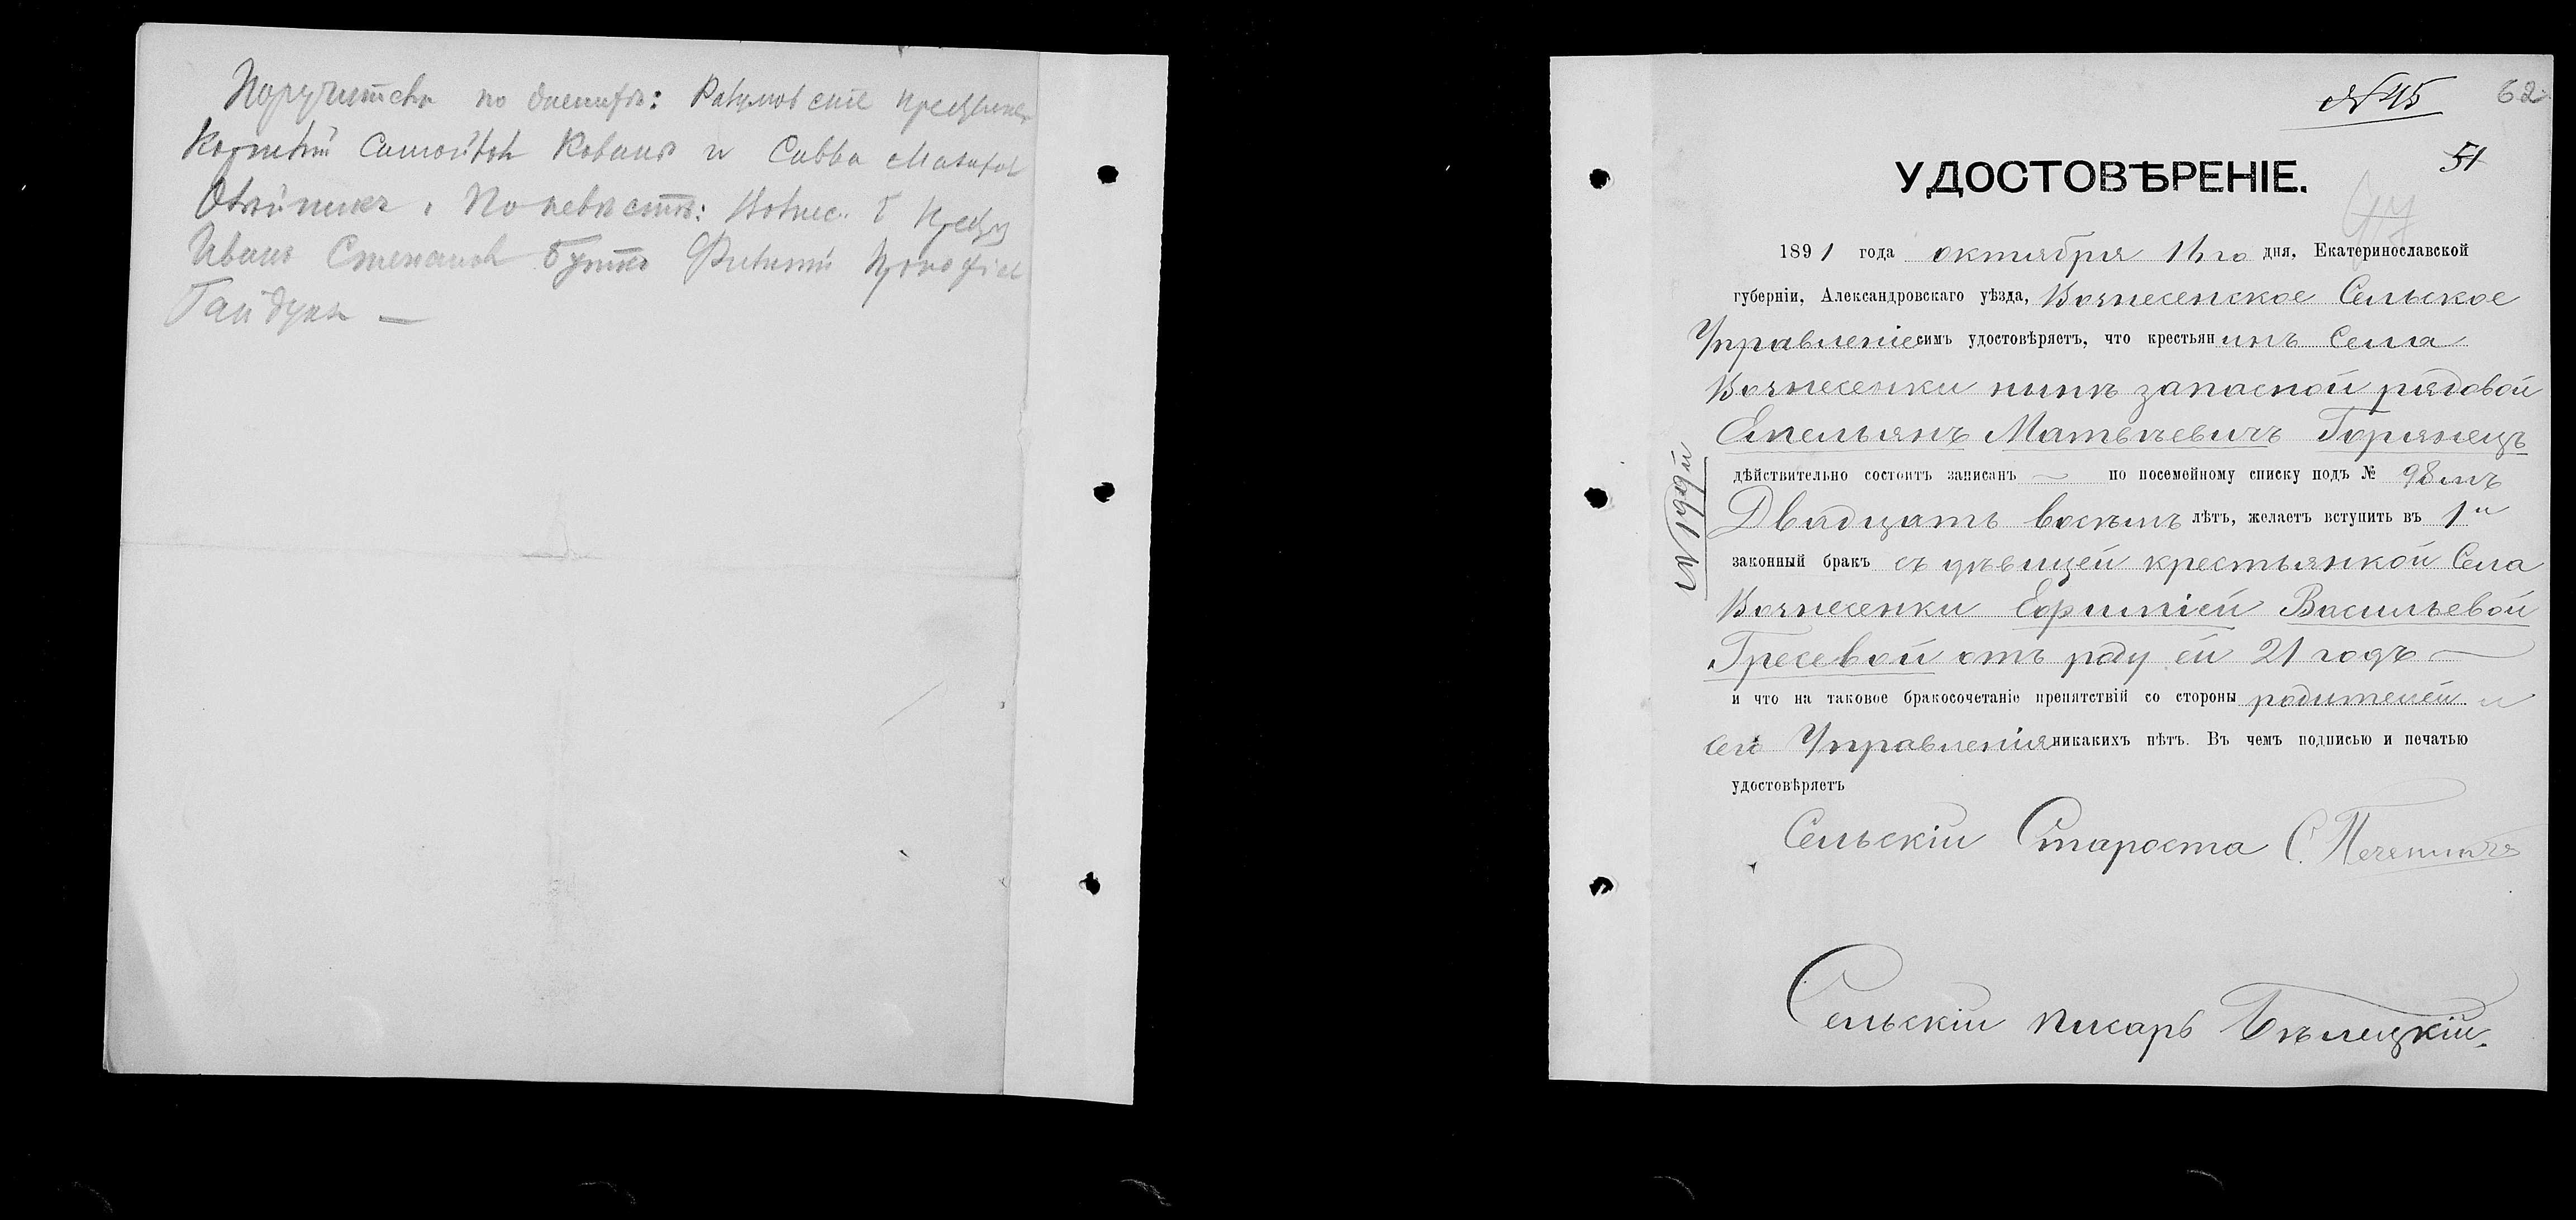 Поручители по женихѣ: Разумовскіе
Корнѣй Самойловъ Кованъ и Савва Мазаровъ
По невѣстѣ:
Иванъ Степановъ Бутко Филипъ
Гайдукъ —
№ 45
62
51
УДОСТОВѢРЕНІЕ.
47
1891 года октября 16го дня, Екатеринославской
губерніи, Александровскаго уѣзда, Вознесенское Сельское
Управленіе симъ удостовѣряетъ, что крестьянинъ Села
Вознесенки нынѣ запасной рядовой
Емельянъ Матвѣевичъ Горянецъ
дѣйствительно состоитъ записанъ — по посемейному списку подъ № 98мъ
Двадцать восемь лѣтъ, желаетъ вступить въ 1й
законный бракъ съ дѣвицей крестьянкой Села
Вознесенки Ефиміей Васильевой
Гресевой отъ роду ей 21 годъ —
и что на таковое бракосочетаніе препятствій со стороны родителей и
сего Управленія никакихъ нѣтъ. Въ чемъ подписью и печатью
удостовѣряетъ
Сельскій Староста С.
Сельскій писарь Бѣлецкій.
№ 1999й